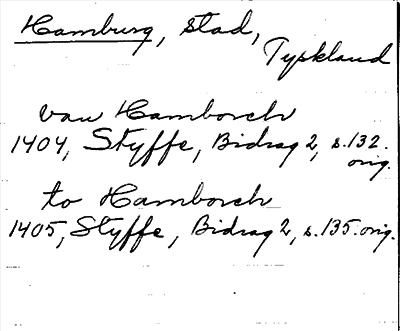 Hamburg, stad,
Tyskland
van Hamborch
1404, Styffe, Bidrag 2, s.132.
orig.
to Hamborch
1405, Styffe, Bidrag 2, s.135.orig.